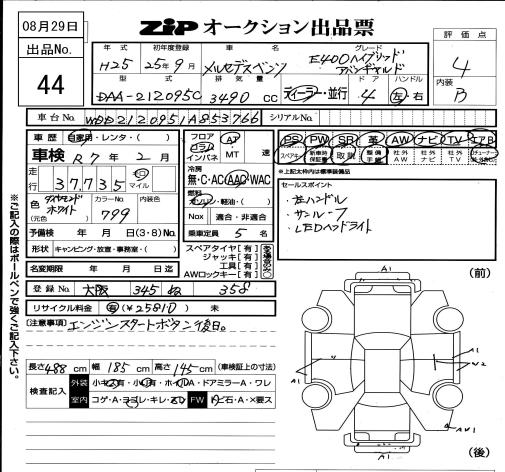 08月29日
ZIP オークション出品票
出品No.
44
年式 初年度登録 車名 グレード
H25 25年9月 メルセデスベンツ E400ハイブリッド アバンギャルド
型式 排気量 ドア ハンドル
DAA-212095C 3490 cc ディーラー・並行 4 左・右
評価点
4
内装
B
車台No. WDD2120951A853766 シリアルNo.
車歴 自家用・レンタ・( )
車検 R7年2月
走行 37,735 マイル
色 ダイヤモンドホワイト (元色) カラーNo. 799 内装色
予備検 年 月 日(3・8)No.
形状 キャンピング・放置・事務室・( )
名変期限 年 月 日迄
フロア コラム インパネ AT MT 速
冷房 無・C・AC・AAC・WAC
燃料 ガソリン・軽油・( )
Nox 適合・非適合
乗車定員 5 名
スペアタイヤ[有]
ジャッキ[有]
工具[有]
AWロックキー[有]
PS PW SR 革 AW ナビ TV エアB
スペアキー 新車時保証書 取説 整備手帳 社外AW 社外ナビ 社外TV
※上記太枠内は標準装備品
セールスポイント
・左ハンドル
・サンルーフ
・LEDヘッドライト
登録No. 大阪 345 ぬ 358
リサイクル料金 有(¥25810) 未
[注意事項] エンジンスタートボタン後日。
長さ488cm 幅185cm 高さ145cm (車検証上の寸法)
検査記入 外装 小キズ有・小凹有・ホイルA・ドアミラーA・ワレ
室内 コゲ・A・ヨゴレ・キレ・スレ FW トビ石・A・×要ス
※ご記入の際はボールペンで強くご記入下さい。
(前)
A1
A1
A1
W2
A1
AW1
A1
(後)